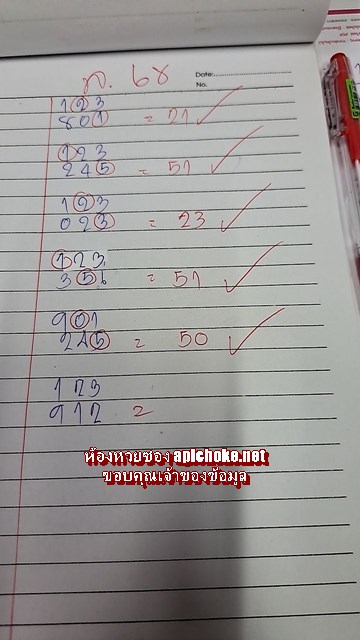 ก. 68
Date:
No.
123
801 = 21
123
245 = 51
123
023 = 23
123
356 = 51
901
245 = 50
123
912 =
ห้องหวยซอง apichoke.net
ขอบคุณเจ้าของข้อมูล